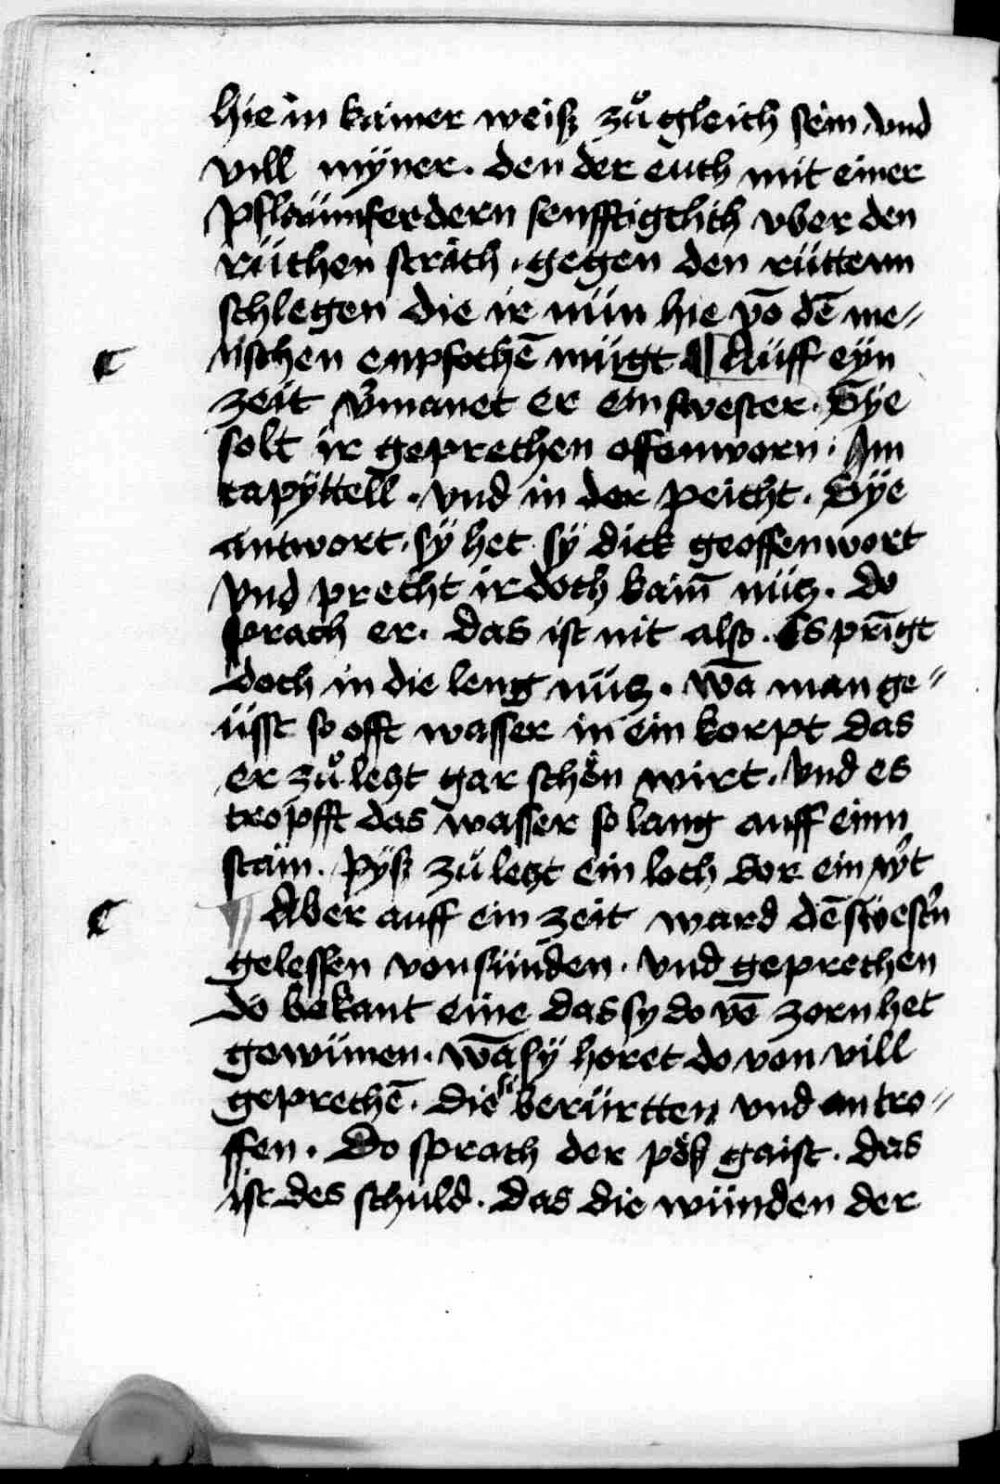 hie in kainer weisz zuͦ gleich sein / vnd
vill mÿner · den der euch mit einer
pflaümferdern senfftigchich vber den
rüchen strach · gegen den rüttenn
schlegen die ir nün hie vō dē me„
nischen enpfochē mügt ¶ Aüff eÿn
zeit v̉manet er ein swester · Sÿe
solt ir geprechen offenworn · Im
capÿttell · vnd in der peicht · Sÿe
antwort · sÿ het sÿ dick geoffenwort
vnd precht ir doch kain̄ nütz · do
sprach er · das ist nit also · Es prīgt
doch in die leng nütz · wā man ge„
üsst so offt wasser in ein korpt das
er zuͦ letzt gar schön wirt · vnd es
tropfft das wasser so lang auff einn
stain · Pÿsz zuͦ letzt ein loch dor ein w̉t
¶ Aber auff ein zeit ward dē swest̉n
gelessen von sünden · vnd geprechen
do bekant eine das sy do vō zorn het
gewünen · wā sÿ horet do von vill
geprechē · die si berürtten vnd an tro„
ffen · Do sprach der pösz gaist · das
ist des schuld · das die wünden der